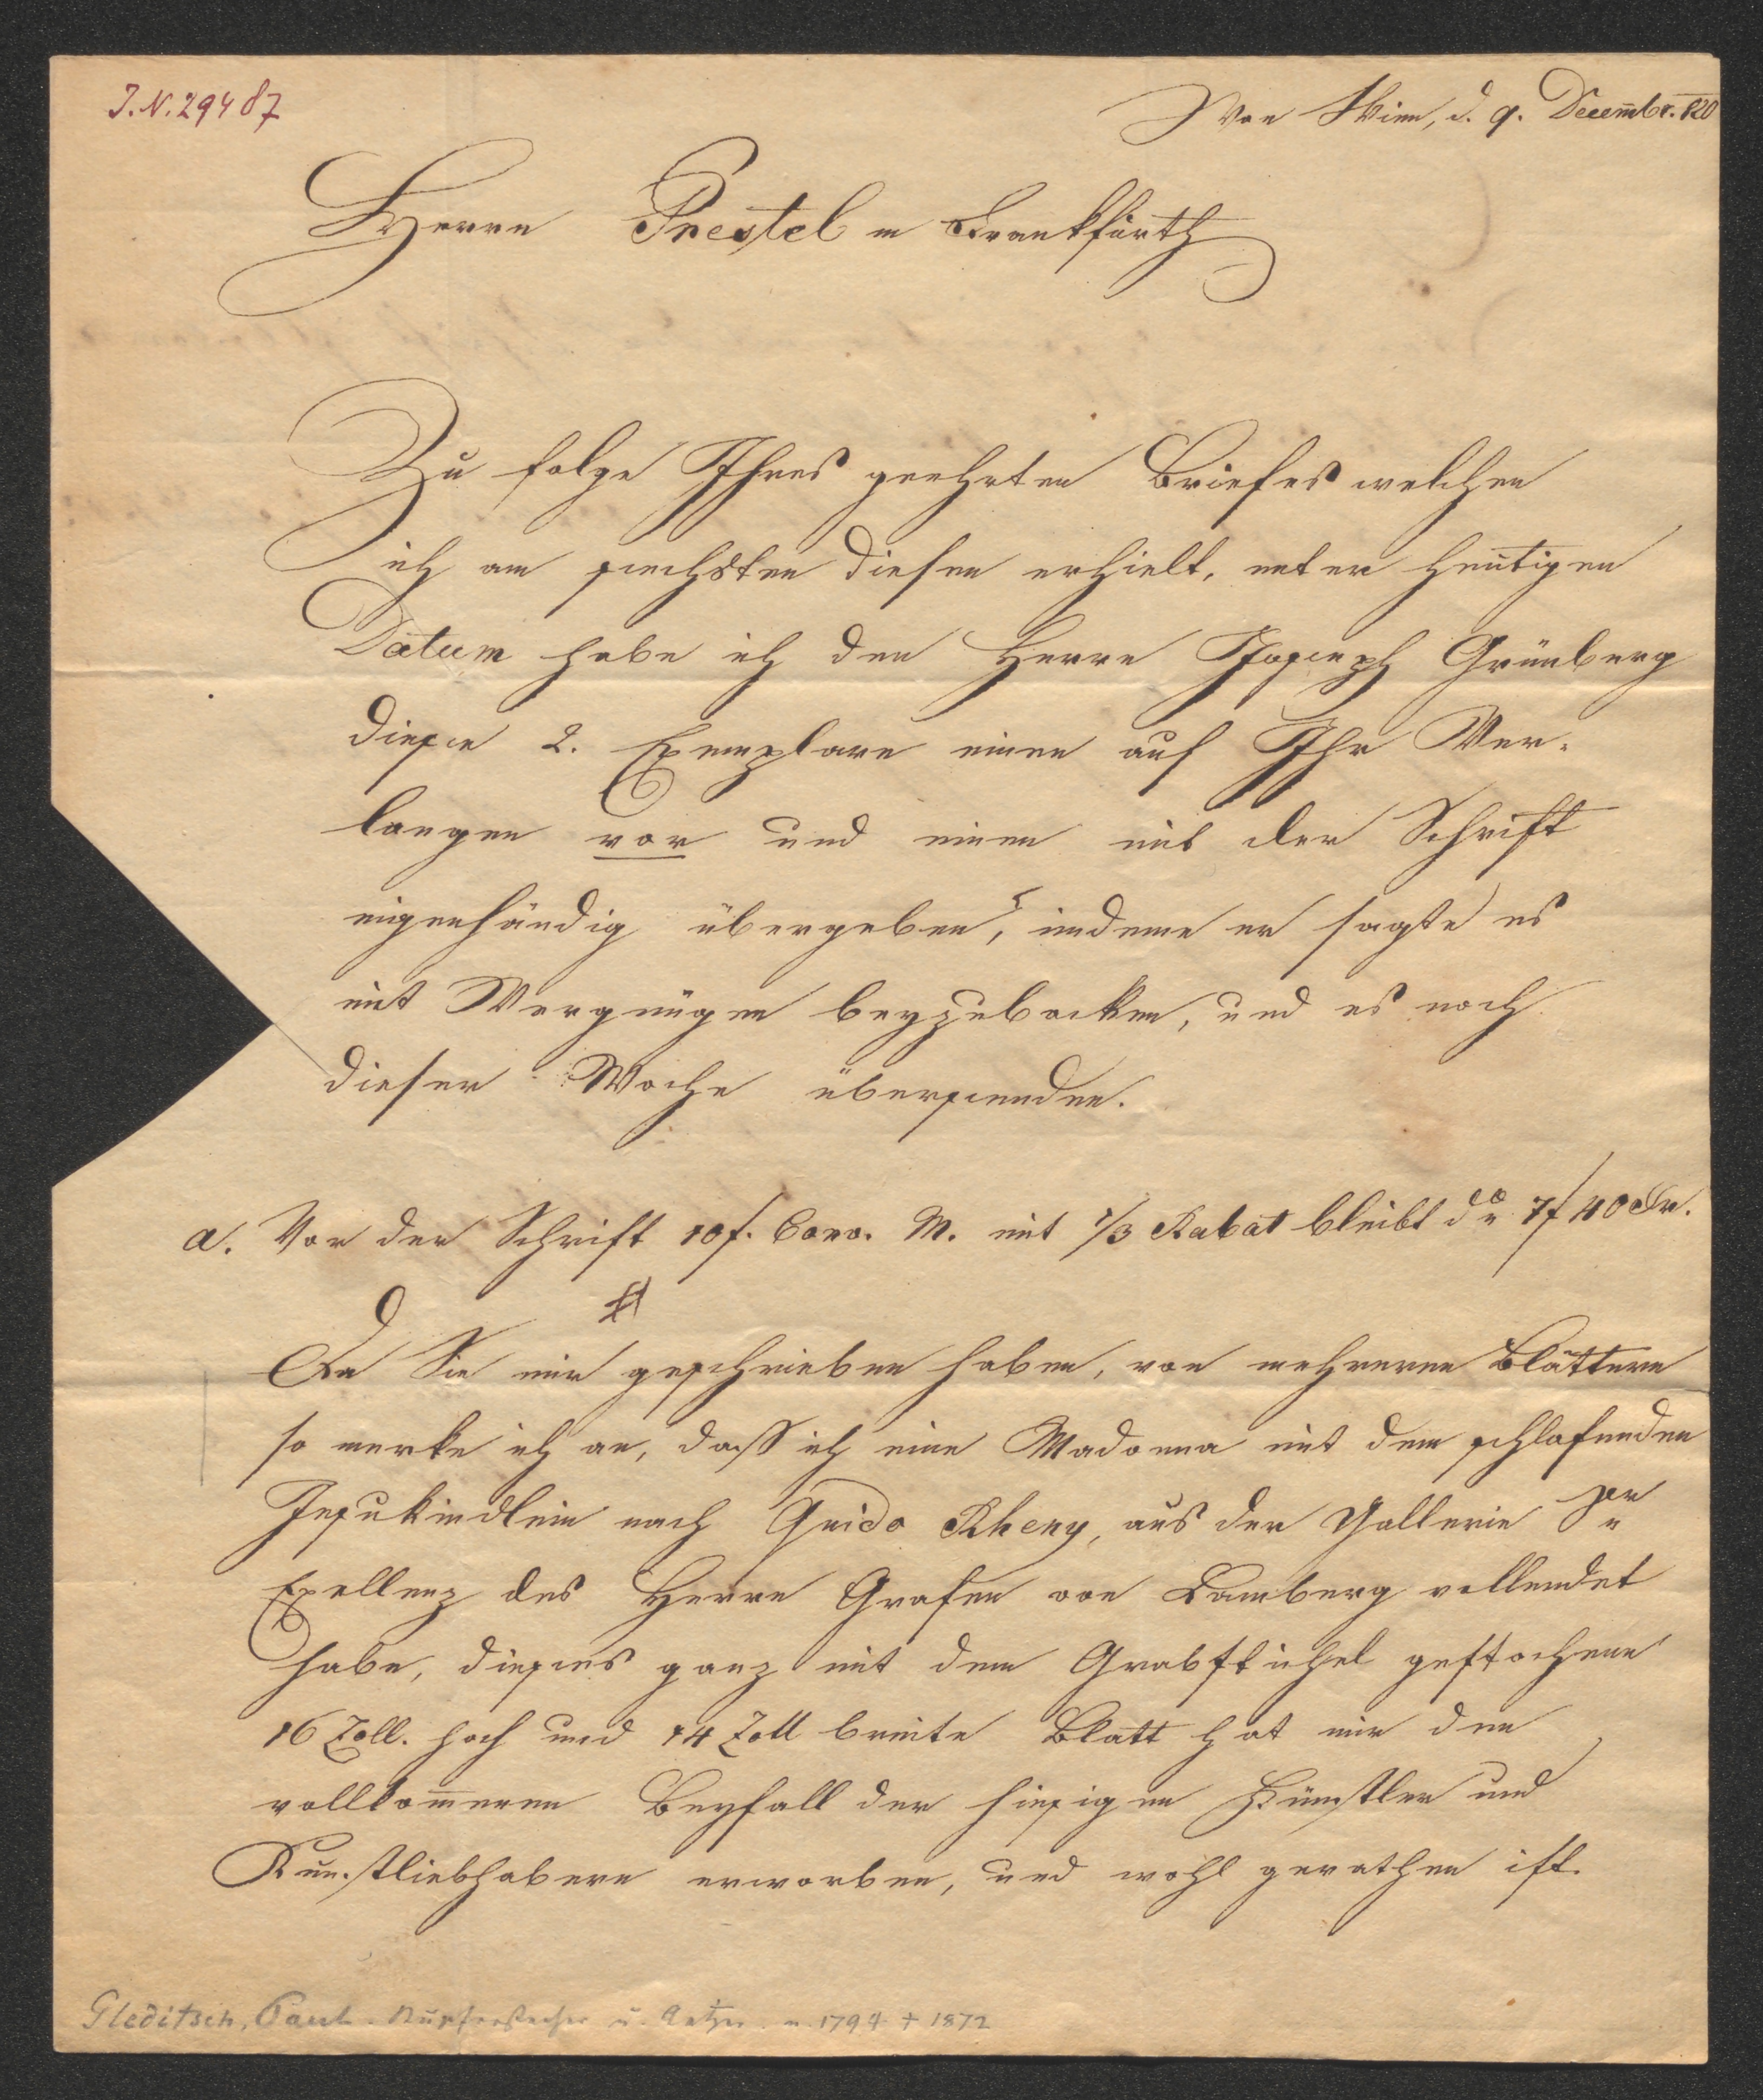 I.N. 29487
Von Wien, d. 9. Decembr. 820
Herrn Prestel in Frankfürth
Zu folge Ihres geehrten Briefes welchen
ich am sechsten diesen erhielt, unter heutigen
Datum habe ich den Herrn Joseph Grünberg
diese 2. Exemplare einen auf Ihr Ver-
langen vor und einen mit der Schrift
eigenhändig übergeben, indeme er sagte es
mit Vergnügen beyzubacken, und es noch
dieser Woche übersenden.
a. Vor der Schrift 10 f. Conv. M. mit 1/3 Rabat bleibt do 7 f 40 Xr.
Da Sie mir geschrieben haben, von mehreren Blättern
so merke ich an, dass ich eine Madonna mit dem schlafenden
Jesukindlein nach Guido Rheny, aus der Gallerie Sr
Exellenz des Herrn Grafen von Lamberg vollendet
habe, dieses ganz mit dem Grabstichel gestochene
16 Zoll. hoch und 14 Zoll breite Blatt hat mir den
vollkom̅enen Beyfall der hiesigen Künstler und
Kunstliebhabern erworben, und wohl gerathen ist.
Gleditsch, Paul. Kupferstecher u. Aetzer. n. 1794 + 1872